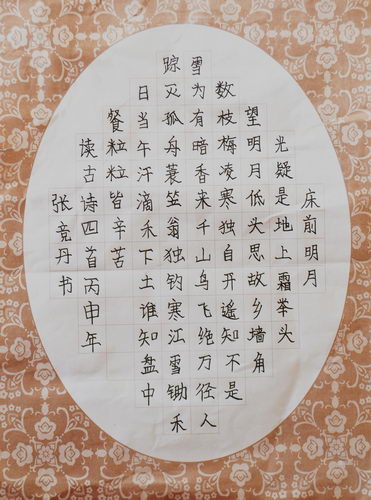 床前明月
光疑是地上霜举头
望明月低头思故乡墙角
数枝梅凌寒独自开遥知不是
雪为有暗香来千山鸟飞绝万径人
踪灭孤舟蓑笠翁独钓寒江雪锄禾
日当午汗滴禾下土谁知盘中
餐粒粒皆辛苦
读古诗四首丙申年
张竞丹书